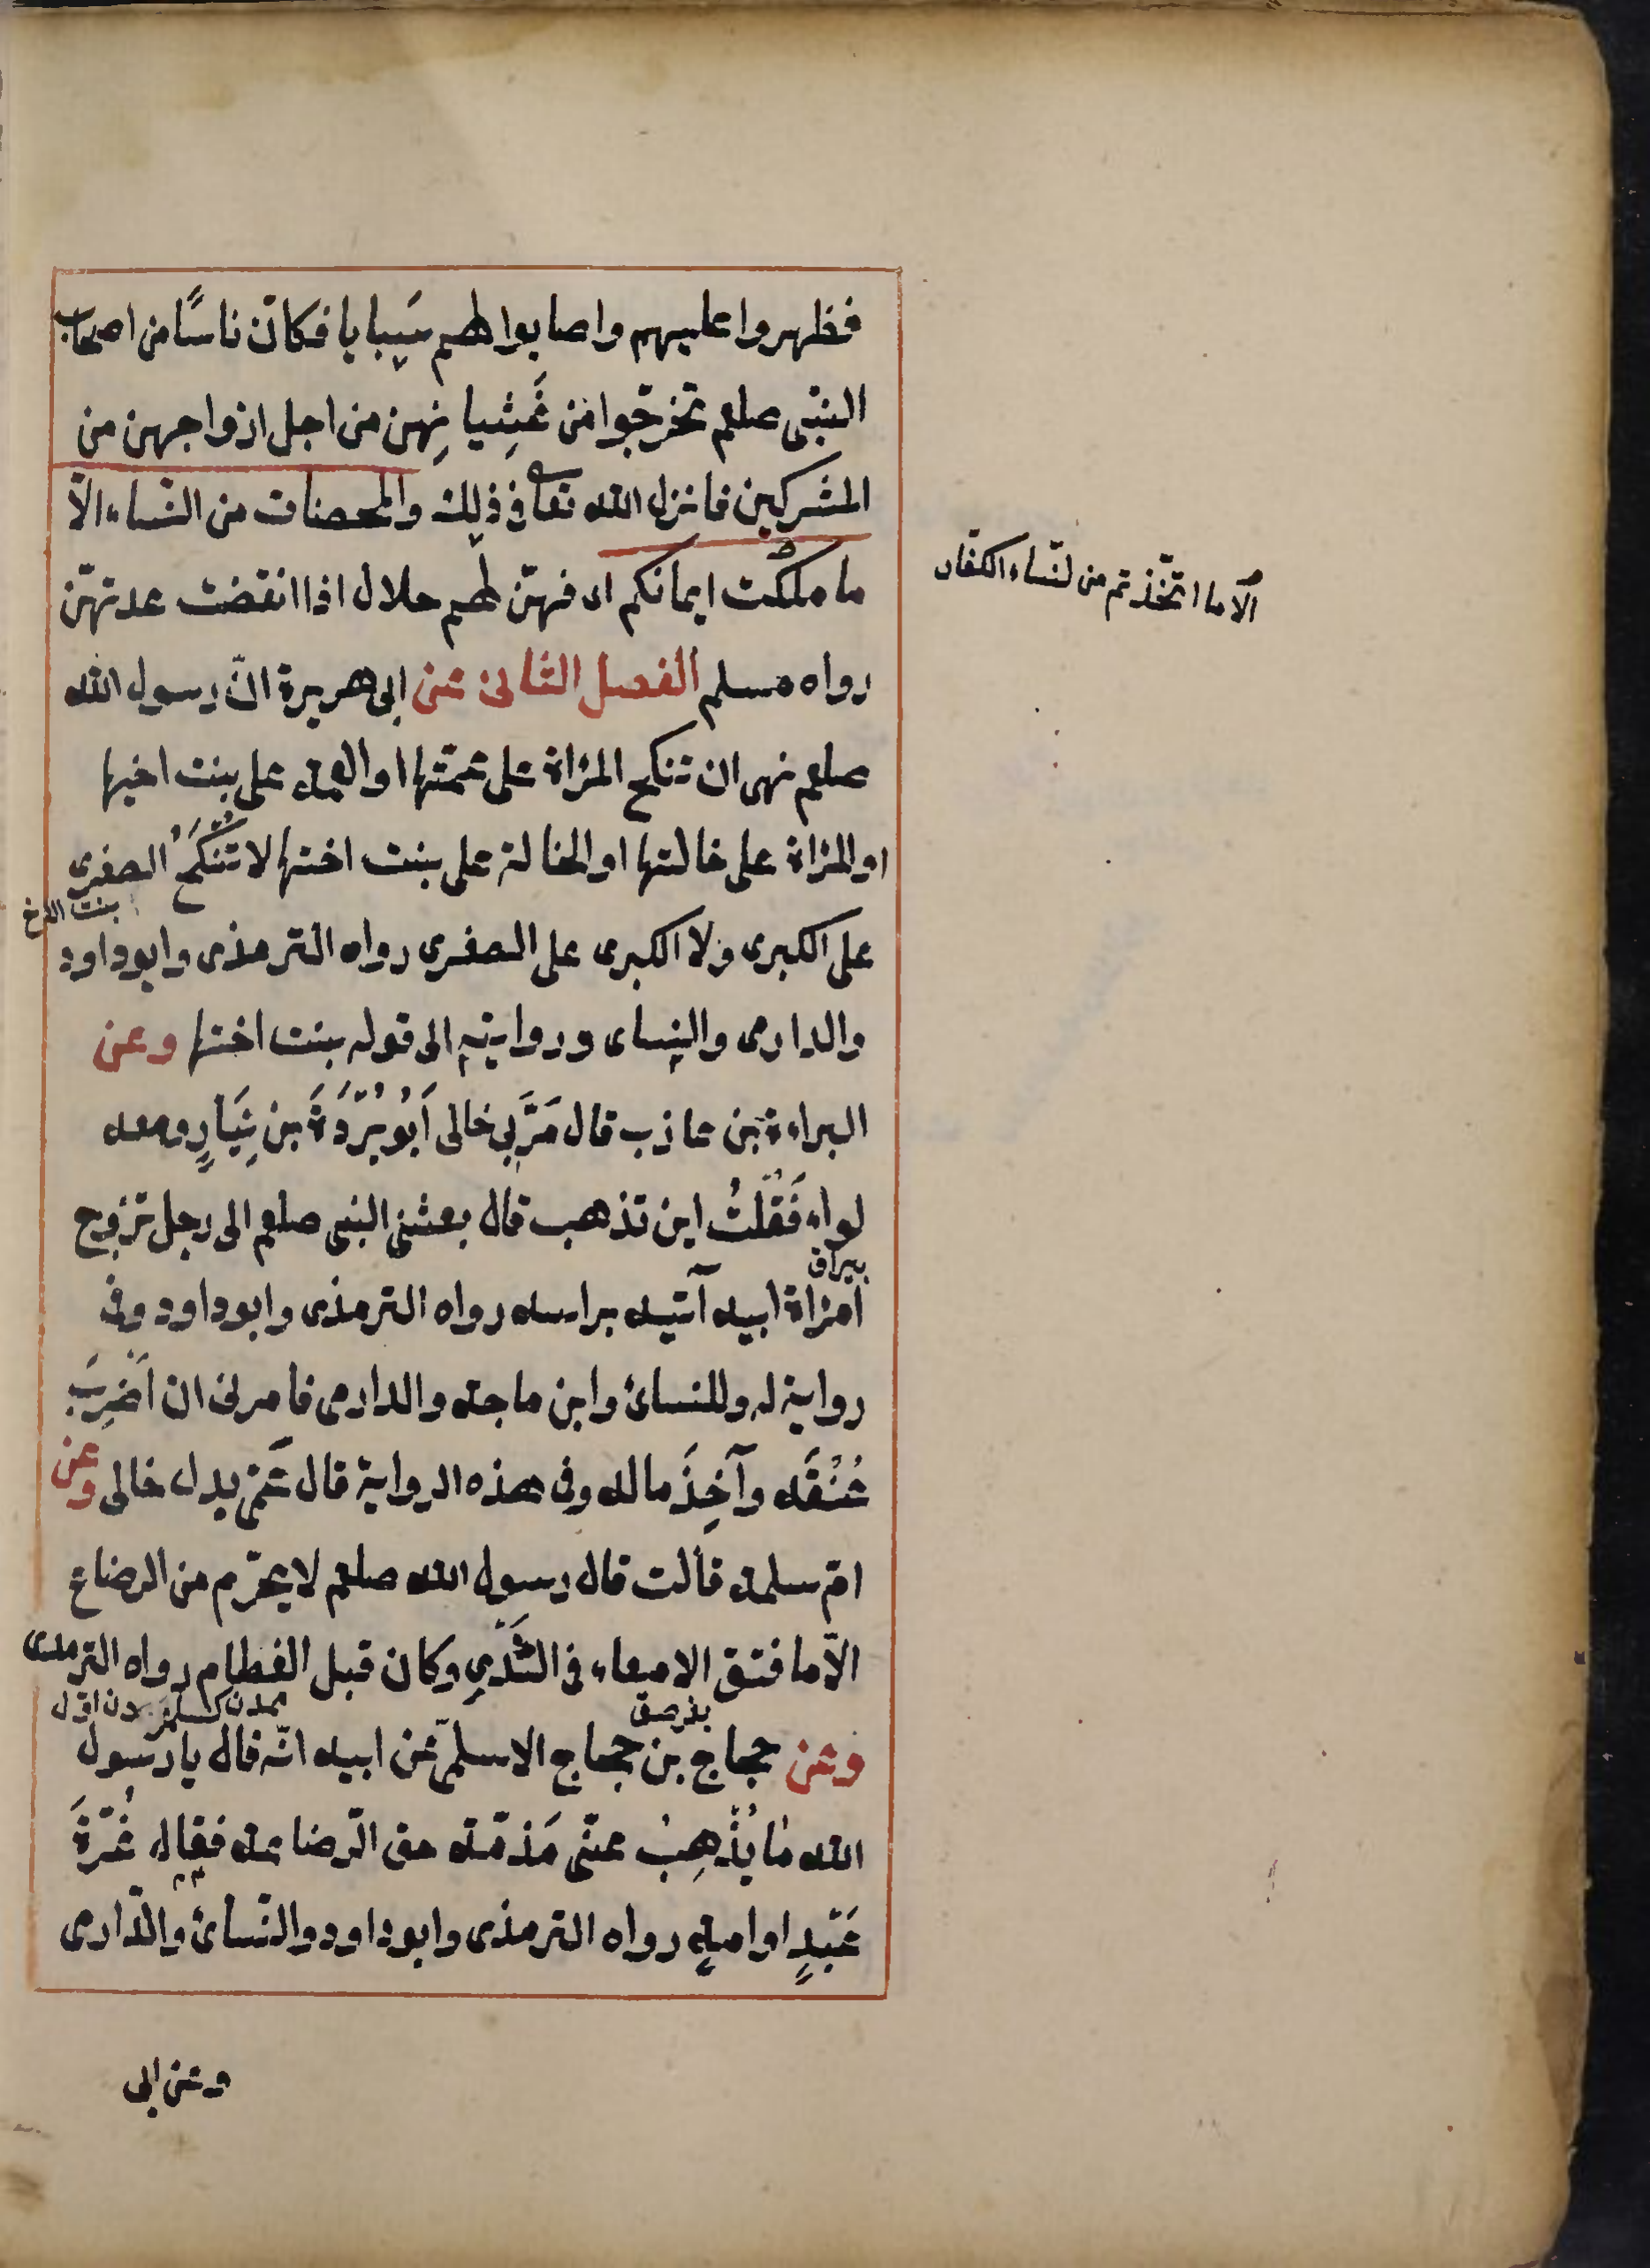 فظهروا عليهم واصابوا لهم سَبِبايا فكانّ ناسًا من اصحاب
النبّى صلعم تخرّجوا من غَشِيا نِهن من اجل ازواجهن من
المشركين فانزل الله تعا فى ذٰلِك والمحصنات من النّساء الاّ
ما ملكت ايمانكم اى فهنّ لهم حلال اذا انقضت عدتهنّ
الاّ ما اتخّذتم من لنّساء الكفّار
رواه مسلم الفصل الثانى عن ابى هريرة انّ رسول الله
صلعم نهى ان تنكح المرْاة على عمّتها او العمة على بنت اخيها
او المرْاة على خالتها او الخالة على بنت اختها لا تُنْكَحُ الصغرى
بنت الاخ
على الكبرى ولا الكبرى على الصغرى رواه الترمذى وابو داود
والدارمى والنِساى وروايته الى قوله بنت اختها وعن
البراءة بن عازب قال مَرَّبِى خالى اَبُو بُرْدَةَ بن نِيَارٍ ومعه
لواء فَقُلْتُ اين تذهب قال بعثنى النبى صلعم الى رجل تزوج
بيراق
امرْاة ابيه آتيه براسه رواه الترمذى وابو داود وفى
رواية له وللنسائ وابن ماجة والدارمى فامرنى ان اَضْرِبَ
عُنُقَه وآخِذَ ماله وفى هذه الرواية قال عَمّى بدل خالى وعن
امّ سلمة قالت قال رسول الله صلعم لا يحرّم من الرضاع
الاّ ما فتق الامعاء فى الثَدْىِ وكان قبل الفطام رواه الترمذى
وعن حجاج بن حجاج الاسلمّى عن ابيه انّه قال يا رسول
الله ما يُذْهِبُ عنّى مَذمّة حق الرّضاعة فقال غُرّةَ
عَبْدٍ او امةٍ رواه الترمذى وابو داود والنّسائ والدّارمى
وعن ابى